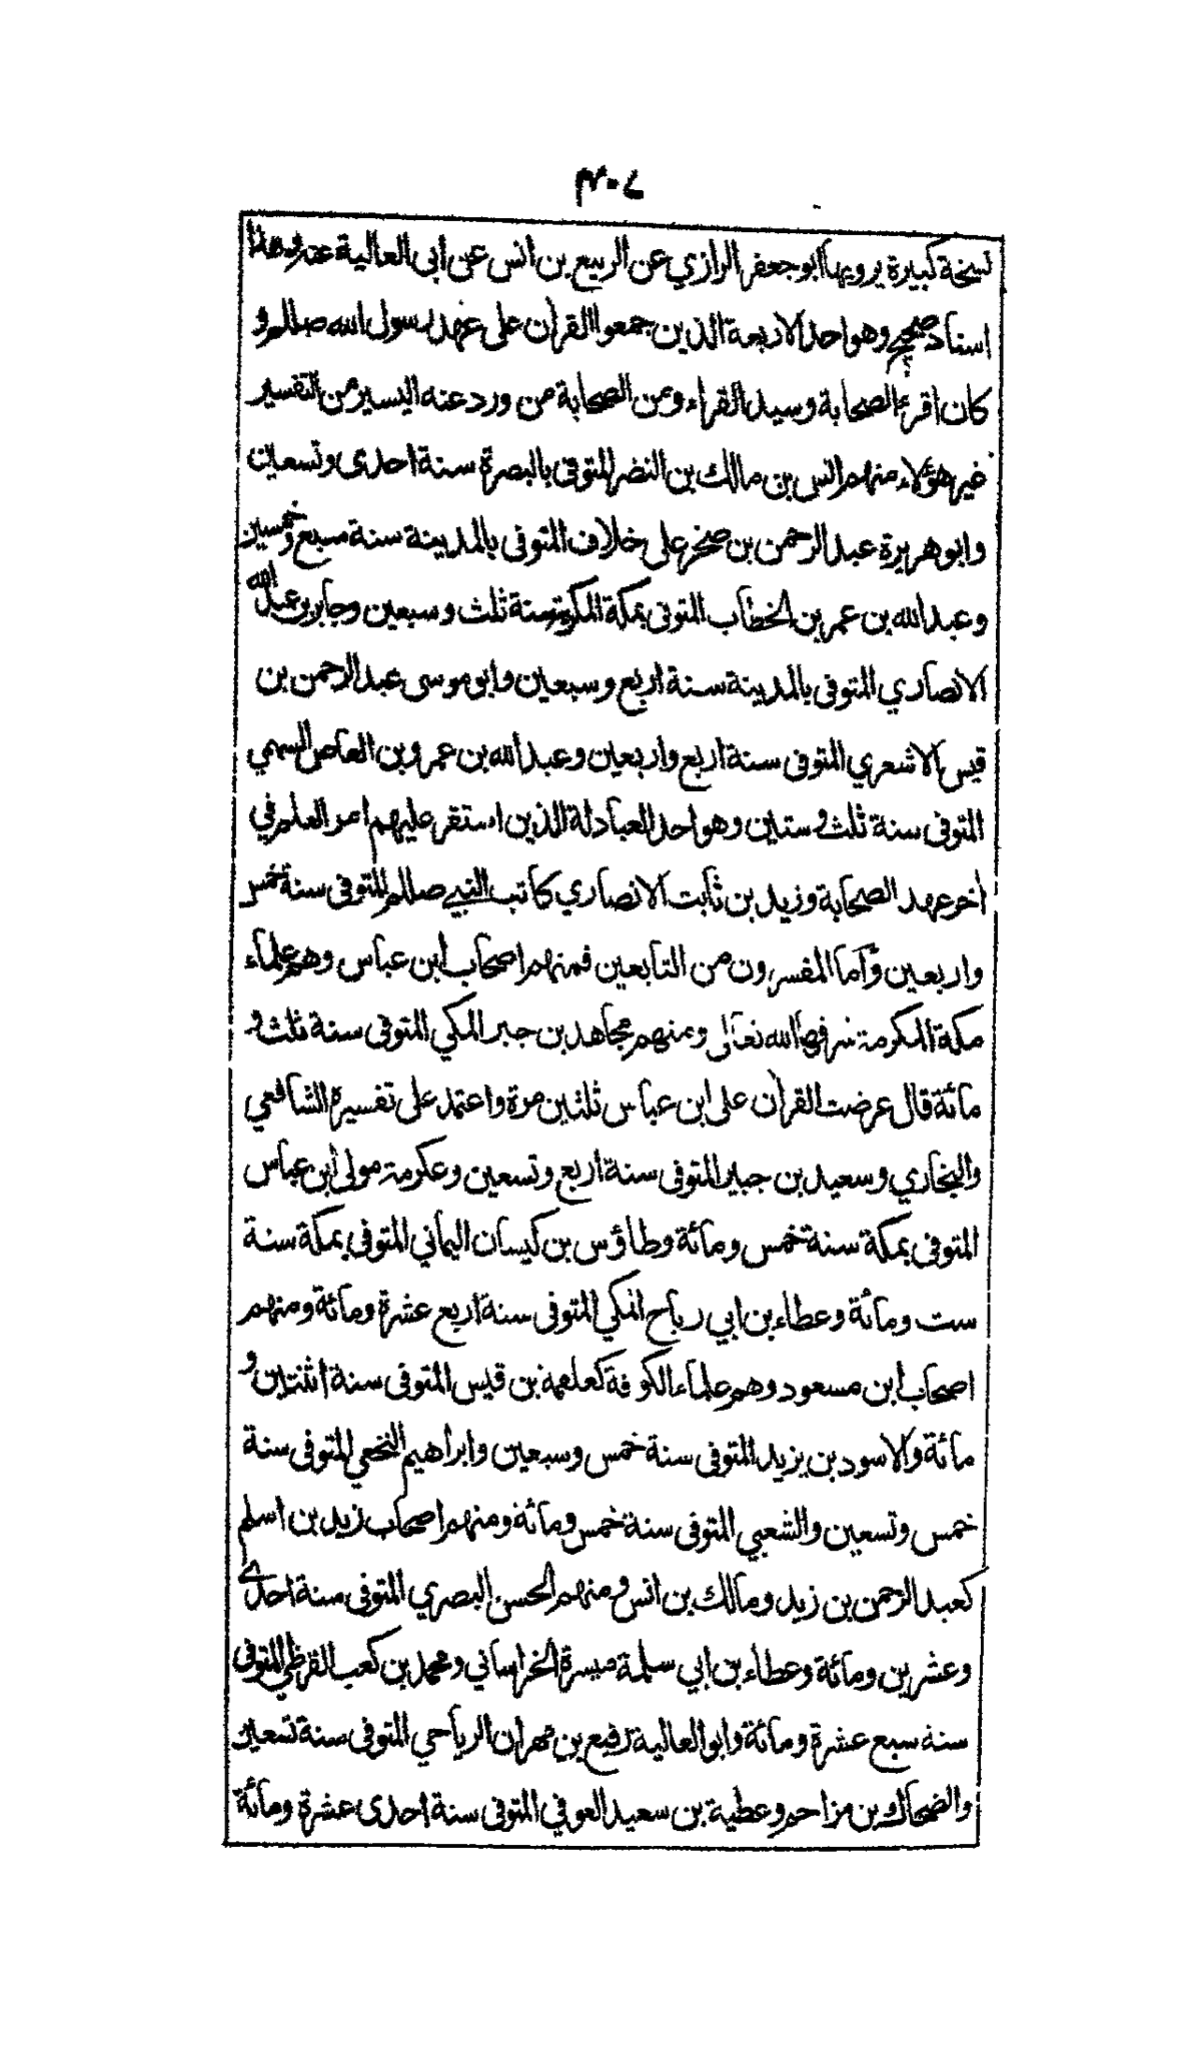 ٤٠٧
نسخة كبيرة يرويها ابو جعفر الرازي عن الربيع بن انس عن ابى العالية عنه وهذا
اسناد صحيح وهو احد الاربعة الذين جمعوا القرأن على عهد رسول الله صللم و
كان اقرء الصحابة وسيد القراء ومن الصحابة من ورد عنه اليسير من التفسير
غير هؤلاء منهم انس بن مالك بن النضر المتوفى بالبصرة سنة احدى وتسعين
وابو هريرة عبد الرحمن بن صخر على خلاف المتوفى بالمدينة سنة سبع وخمسين
وعبد الله بن عمر بن الخطاب المتوفى بمكة المكرمة سنة ثلث وسبعين وجابر بن عبد الله
الانصاري المتوفى بالمدينة سنة اربع وسبعين وابو موسى عبد الرحمن بن
قيس الاشعري المتوفى سنة اربع واربعين وعبد الله بن عمرو بن العاص السهمي
المتوفى سنة ثلث وستين وهو احد العبادلة الذين استقر عليهم امر العلم في
أخر عهد الصحابة وزيد بن ثابت الانصاري كاتب النبي صللم المتوفى سنة خمس
واربعين وأما المفسرون من التابعين فمنهم اصحاب ابن عباس وهم علماء
مكة المكرمة شرفها الله تعالى ومنهم مجاهد بن جبر المكي المتوفى سنة ثلث و
مائة قال عرضت القرأن على ابن عباس ثلثين مرة واعتمد على تفسيره الشافعي
والبخاري وسعيد بن جبير المتوفى سنة اربع وتسعين وعكرمة مولى ابن عباس
المتوفى بمكة سنة خمس ومائة وطاؤس بن كيسان اليماني المتوفى بمكة سنة
ست ومائة وعطاء بن ابي رباح المكي المتوفى سنة اربع عشرة ومائة ومنهم
اصحاب ابن مسعود وهم علماء الكوفة كعلقمة بن قيس المتوفى سنة اثنتين و
مائة والاسود بن يزيد المتوفى سنة خمس وسبعين وابراهيم النخعي المتوفى سنة
خمس وتسعين والشعبي المتوفى سنة خمس ومائة ومنهم اصحاب زيد بن اسلم
كعبد الرحمن بن زيد ومالك بن انس ومنهم الحسن البصري المتوفى سنة احدى
وعشرين ومائة وعطاء بن ابي سلمة ميسرة الخراساني ومحمد بن كعب القرظي المتوفى
سنة سبع عشرة ومائة وابو العالية رفيع بن مهران الرياحي المتوفى سنة تسعين
والضحاك بن مزاحم وعطية بن سعيد العوفي المتوفى سنة احدى عشرة ومائة